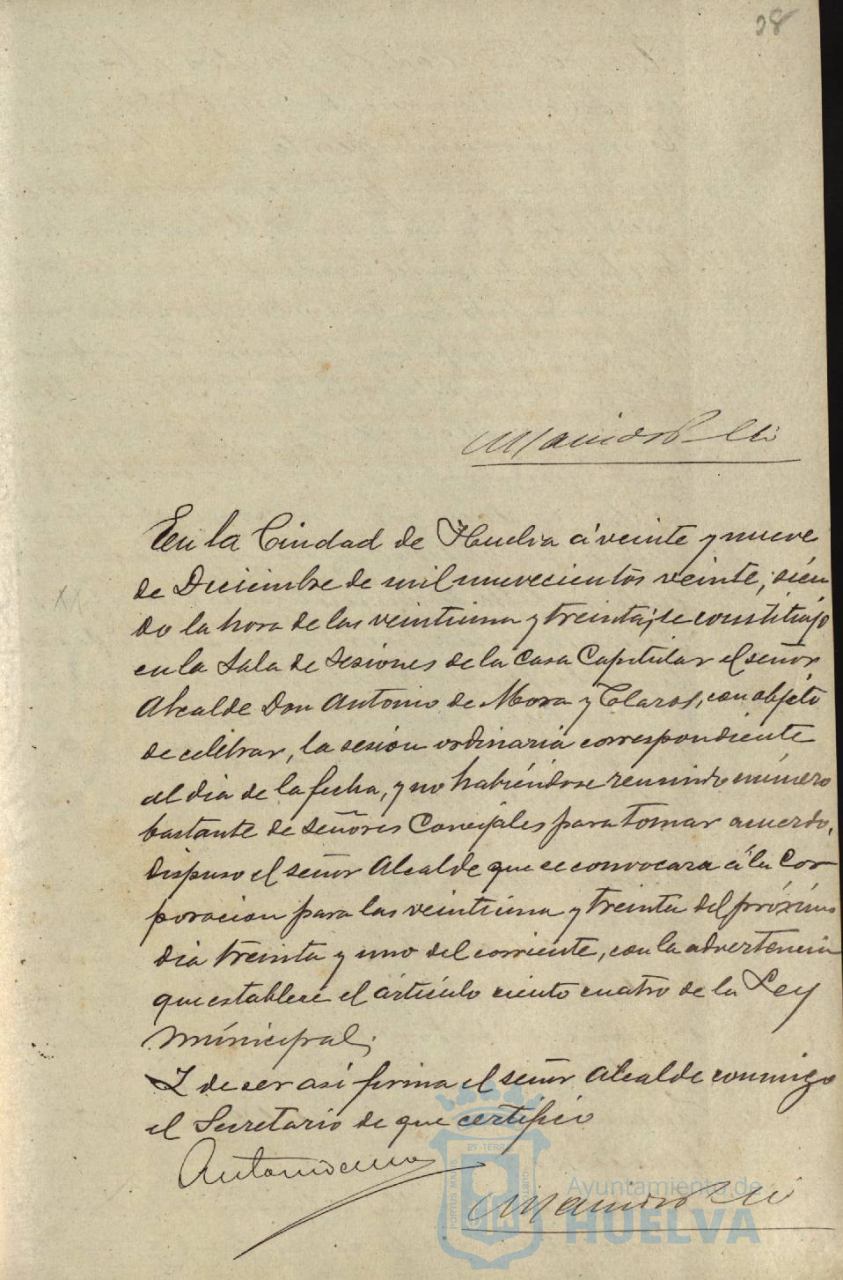 28
En la Ciudad de Huelva á veinte y nueve
de Diciembre de mil nuevecientos veinte, sién
do la hora de las veintiuna y treinta, se constituyó
en la Sala de Sesiones de la Casa Capitular el señor
Alcalde Don Antonio de Mora y Claros, con objeto
de celebrar, la sesión ordinaria correspondiente
al dia de la fecha, y no habiéndose reunido número
bastante de señores Concejales para tomar acuerdo,
dispuso el señor Alcalde que se convocara á la Cor
poracion para las veintiuna y treinta del próximo
dia treinta y uno del corriente, con la advertencia
que establece el artículo ciento cuatro de la Ley
Municipal;
Y de ser así firma el señor Alcalde conmigo
el Secretario de que certifico
Antonio de Mora
Ayuntamiento de
HUELVA